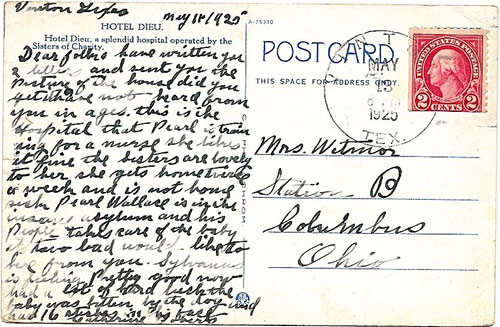 Vinton Texas
May 18/1925
HOTEL DIEU.
Hotel Dieu, a splendid hospital operated by the
Sisters of Charity.
Dear folks have written you
a letter and sent you the
picture of the house did you
get it have not heard from
you in ages. this is the
Hospital that Pearl is train
ing for a nurse she likes
it fine the sisters are lovely
to her she gets home twice
a week and is not home
sick Pearl Wallace is in the
insane asylum and his
People takes care of the baby
it two bad would like to
here from you. Sylvanus
is Pretty good now
had a of bad luck the
baby was bitten by the dog and
had 16 stiches in his face
Roberts
A-75310
POST CARD
THIS SPACE FOR ADDRESS ONLY.
T
MAY
1925
TEX.
UNITED STATES POSTAGE
2 CENTS 2
Mrs. Witmor
Station B
Columbus
Ohio